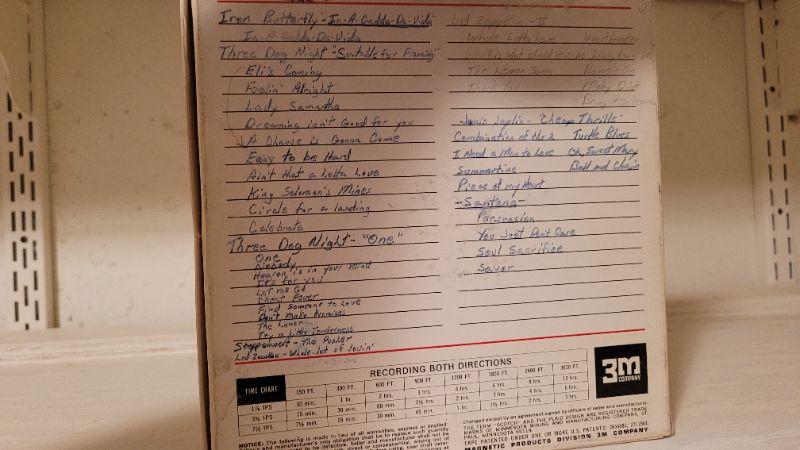 Iron Butterfly - In-A-Gadda-Da-Vida
In-A-Gadda-Da-Vida
Three Dog Night "Suitable for Framing"
Eli's Coming
Feelin' Alright
Lady Samantha
Dreaming isn't Good for you
A Change is Gonna Come
Easy to be Hard
Ain't that a Lotta Love
King Solomon's Mines
Circle for a landing
Celebrate
Three Dog Night - "One"
One
Nobody
Heaven is in your mind
It's for you
Let me Go
Chest Fever
Find Someone to Love
Don't make Promises
The Loner
Try a Little Tenderness
Steppenwolf - The Pusher
Led Zeppelin - Whole lot of lovin'
Led Zeppelin - II
Whole Lotta Love Heartbreaker
What is What should
The Lemon Song Ramble On
Thank Moby Dick
Bring
Janis Joplin - "Cheap Thrills"
Combination of the 2 Turtle Blues
I Need a Man to Love Oh, Sweet Mary
Summertime Ball and Chain
Piece of my Heart
- Santana -
Persuasion
You Just Don't Care
Soul Sacrifice
Savor
RECORDING BOTH DIRECTIONS
TIME CHART 150 FT. 300 FT. 600 FT. 900 FT. 1200 FT. 1800 FT. 2400 FT. 3600 FT.
1⅞ IPS 30 min. 1 hr. 2 hrs. 3 hrs. 4 hrs. 6 hrs. 8 hrs. 12 hrs.
3¾ IPS 15 min. 30 min. 60 min. 1½ hrs. 2 hrs. 3 hrs. 4 hrs. 6 hrs.
7½ IPS 7½ min. 15 min. 30 min. 45 min. 1 hr. 1½ hrs. 2 hrs. 3 hrs.
3M
COMPANY
NOTICE: The following is made in lieu of all warranties, express or implied:
changed except by an agreement signed by officers of seller and manufacturer.
THE TERM "SCOTCH" AND THE PLAID DESIGN ARE REGISTERED TRADE
MARKS OF MINNESOTA MINING AND MANUFACTURING COMPANY, ST.
PAUL, MINNESOTA 55119.
MAGNETIC PRODUCTS DIVISION 3M COMPANY